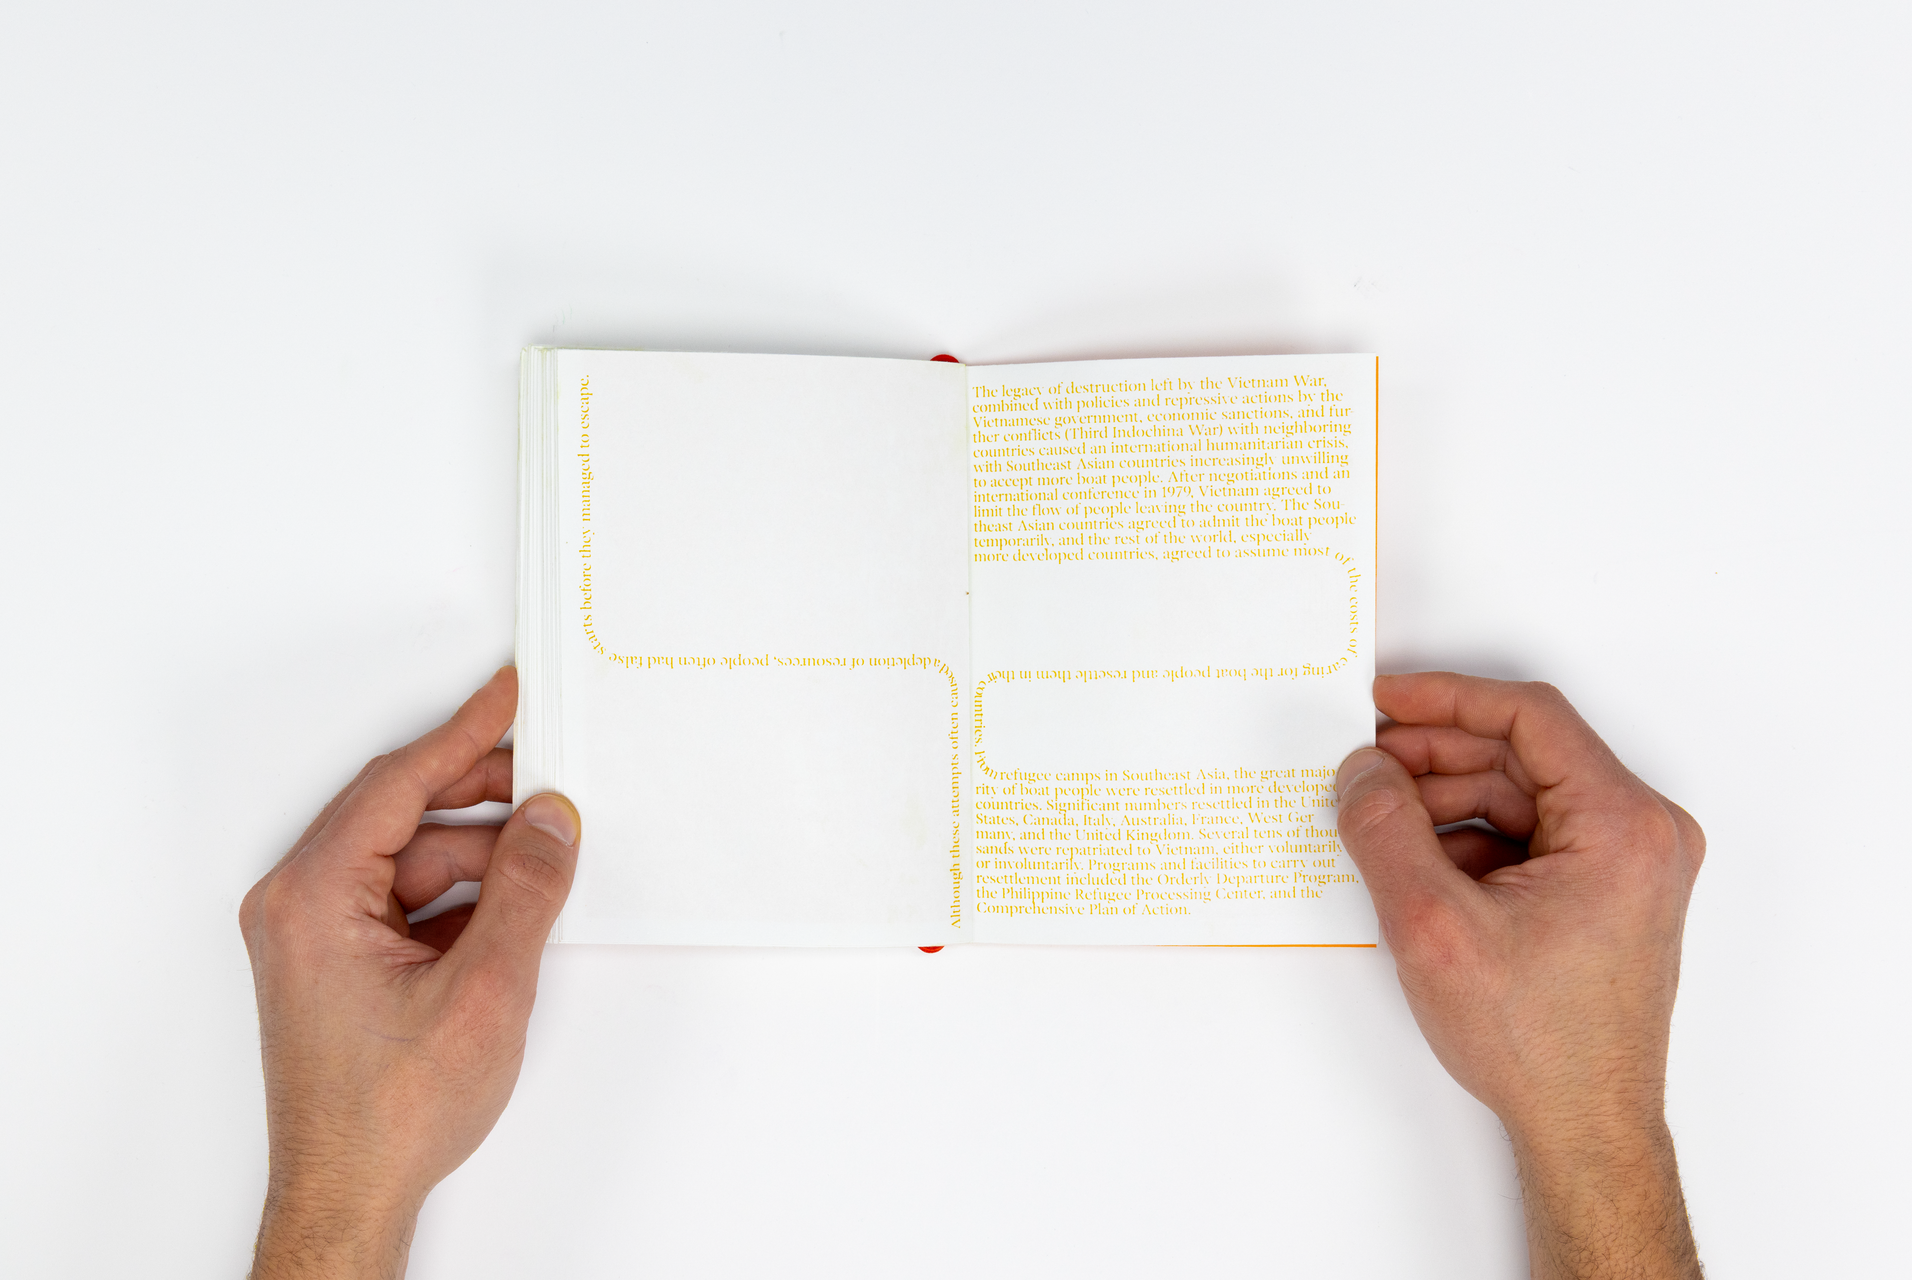 Although these attempts often caused
a depletion of resources, people often had false
starts before they managed to escape.
The legacy of destruction left by the Vietnam War,
combined with policies and repressive actions by the
Vietnamese government, economic sanctions, and fur-
ther conflicts (Third Indochina War) with neighboring
countries caused an international humanitarian crisis,
with Southeast Asian countries increasingly unwilling
to accept more boat people. After negotiations and an
international conference in 1979, Vietnam agreed to
limit the flow of people leaving the country. The Sou-
theast Asian countries agreed to admit the boat people
temporarily, and the rest of the world, especially
more developed countries, agreed to assume most
of the costs of
caring for the boat people and resettle them in their
countries. From
refugee camps in Southeast Asia, the great majo
rity of boat people were resettled in more developed
countries. Significant numbers resettled in the Unite
States, Canada, Italy, Australia, France, West Ger
many, and the United Kingdom. Several tens of thou
sands were repatriated to Vietnam, either voluntarily
or involuntarily. Programs and facilities to carry out
resettlement included the Orderly Departure Program,
the Philippine Refugee Processing Center, and the
Comprehensive Plan of Action.